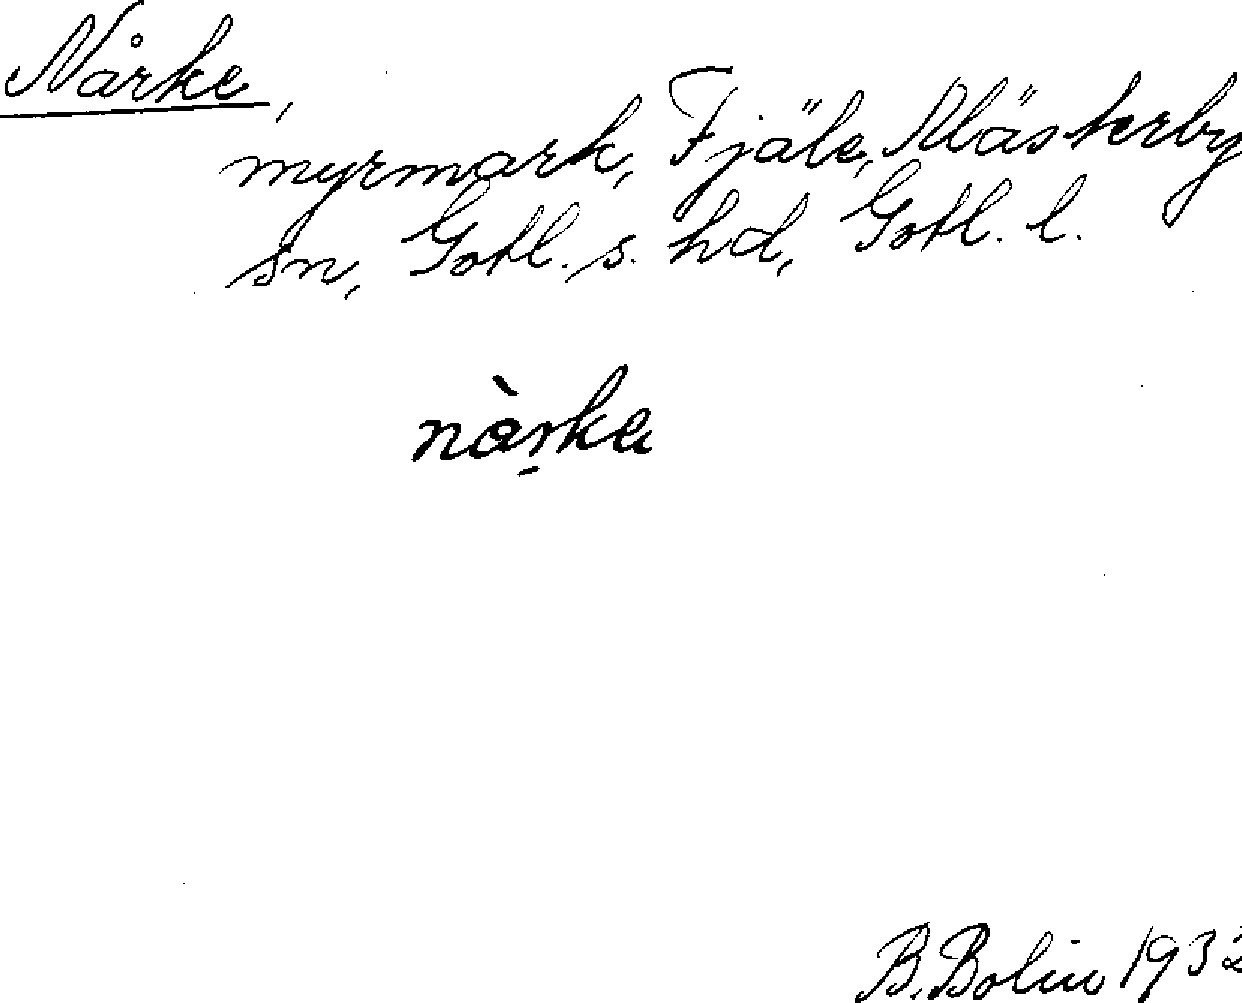 Nårke,
myrmark, Fjäle, Mästerby
sn, Gotl. s. hd, Gotl. l.
nàrka
B. Bolin 1932